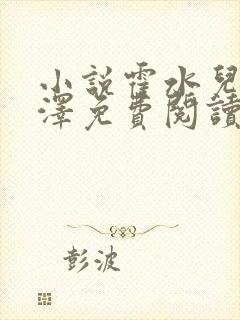 小說霍水兒
澤免費閱讀
彭波